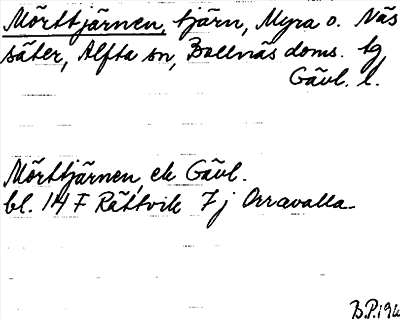 Mörttjärnen, tjärn, Myra o. Näs
säter, Alfta sn, Bollnäs doms. tg
Gävl. l.
Mörttjärnen, ek Gävl.
bl. 14 F Rättvik 7 j Orravalla
B.P. 196